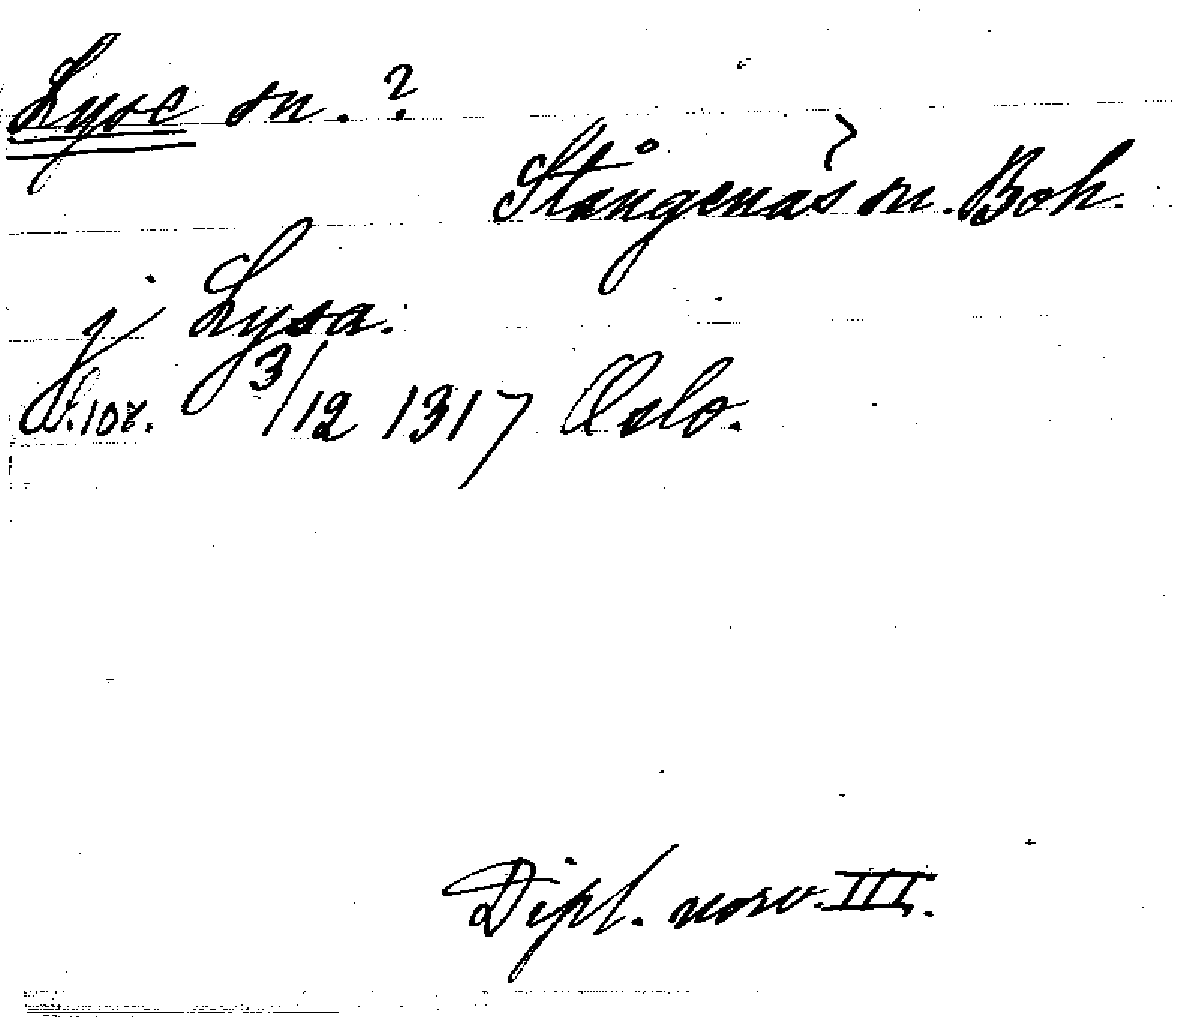 Lyse sn. ?
Stångenäs sn. Boh.
j Lysa.
3/12 1317 Oslo.
Dipl. norv. III.